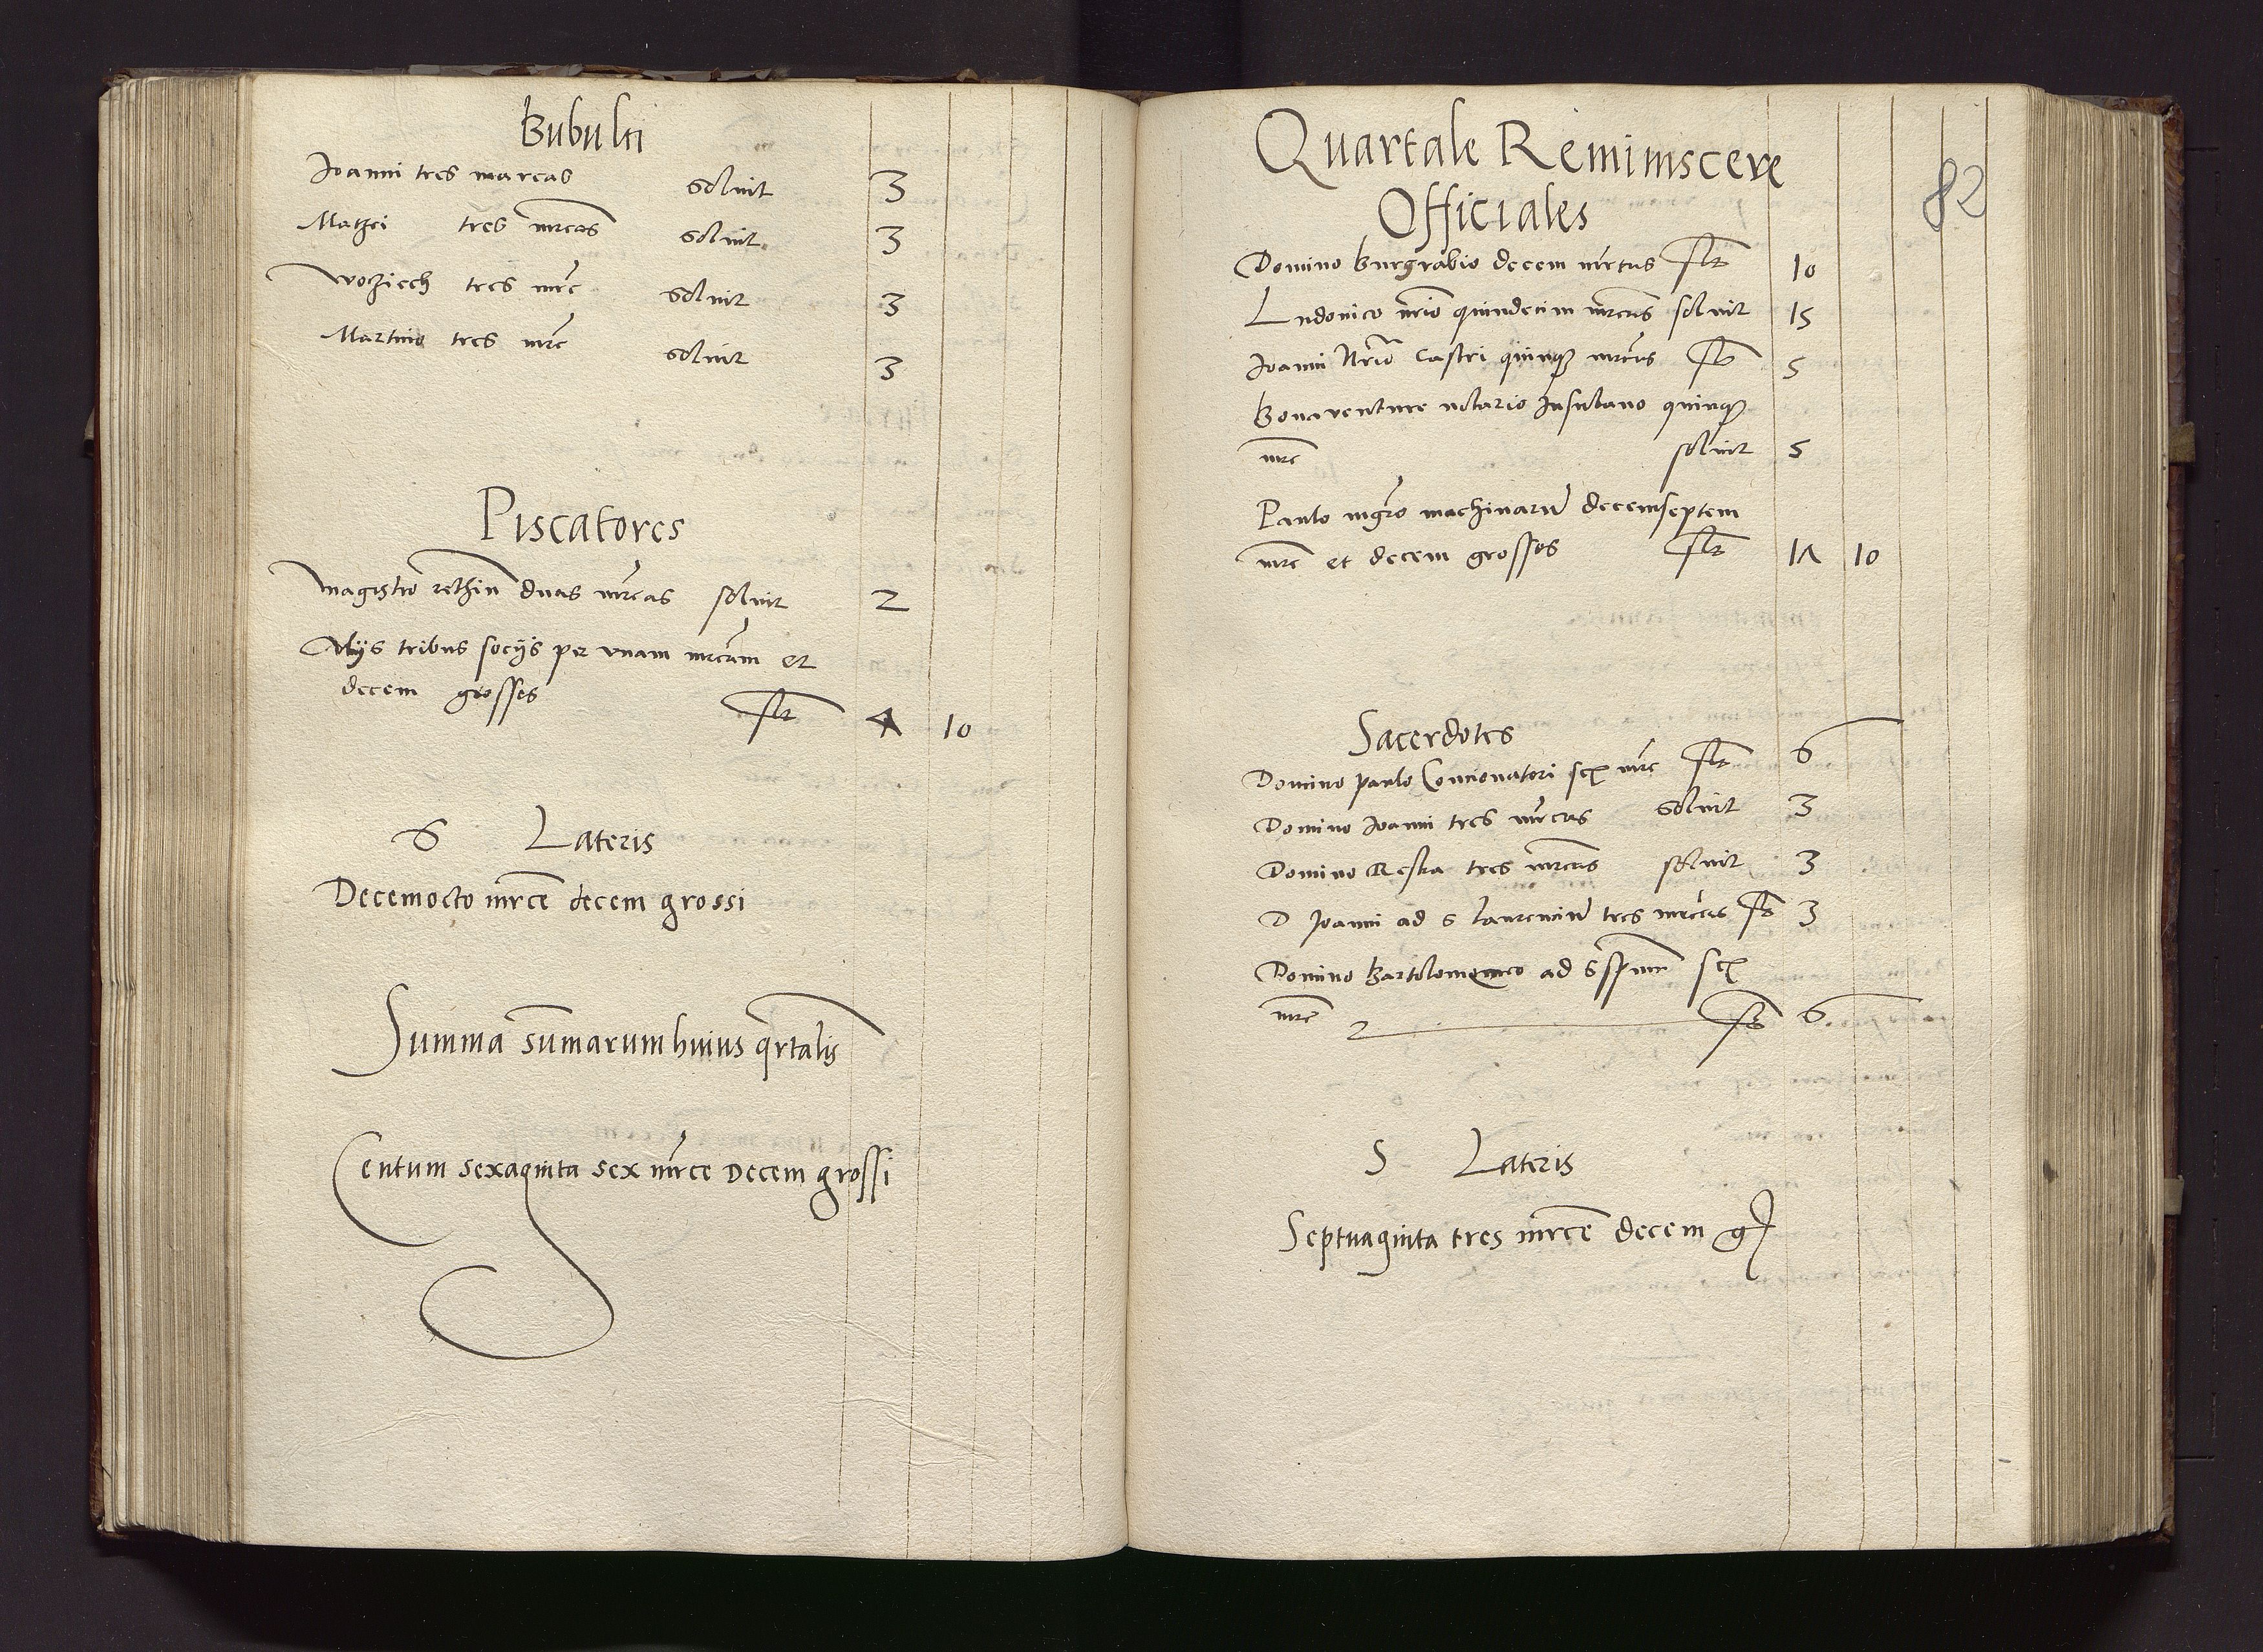 Bubulci
Joanni tres marcas soluit 3
Matzei tres mrcas soluit 3
Woziech tres mrc soluit 3
Martino tres mrc soluit 3
Piscatores
Magistro rethin duas mrcas soluit 2
Alijs tribus socijs per vnam mrcam et
decem grosses slt 4 10
S Lateris
Decemocto mrce decem grossi
Summa summarum huius qrtalis
Centum sexaginta sex mrce Decem grossi
Quartale Reminiscere
82
Officiales
Domino Burgrabio decem mrcas slt 10
Ludouico nrio quindecim mrcas soluit 15
Joanni Nrio Castri quinq mrcas st 5
Bonaventure notario Insulano quinq
mrc soluit 5
Paulo mgro machinaru decemseptem
mrc et decem grosses slt 17 10
Sacerdotes
Domino paulo Concionatori sex mrc slt 6
Domino Joanni tres mrcas soluit 3
Domino Reska tres mrcas soluit 3
D Joanni ad S Laurenciu tres mrcas st 3
Domino Bartolomeo ad S spum sex
mrc st 6
S Lateris
Septuaginta tres mrce decem g